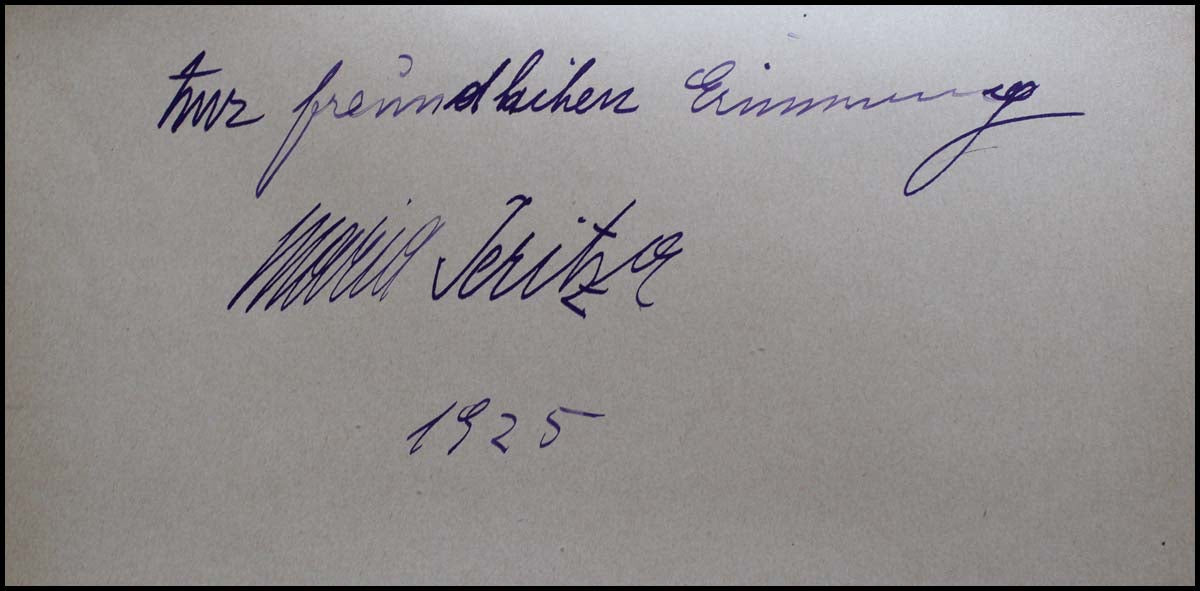 Zur freundlichen Erinnerung
Maria Jeritza
1925